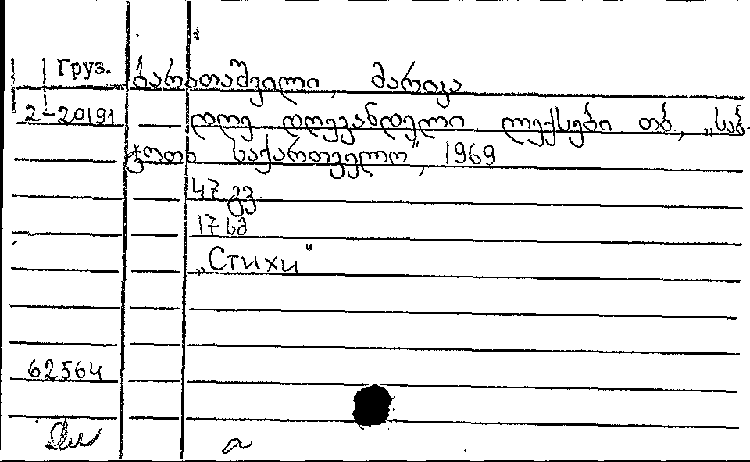 Груз. ბარათაშვილი, მარიკა
2-20191 დღე დღევანდელი ლექსები თბ., „საბ-
ჭოთა საქართველო", 1969
47 გვ
17 სმ
„Стихи"
62564
a